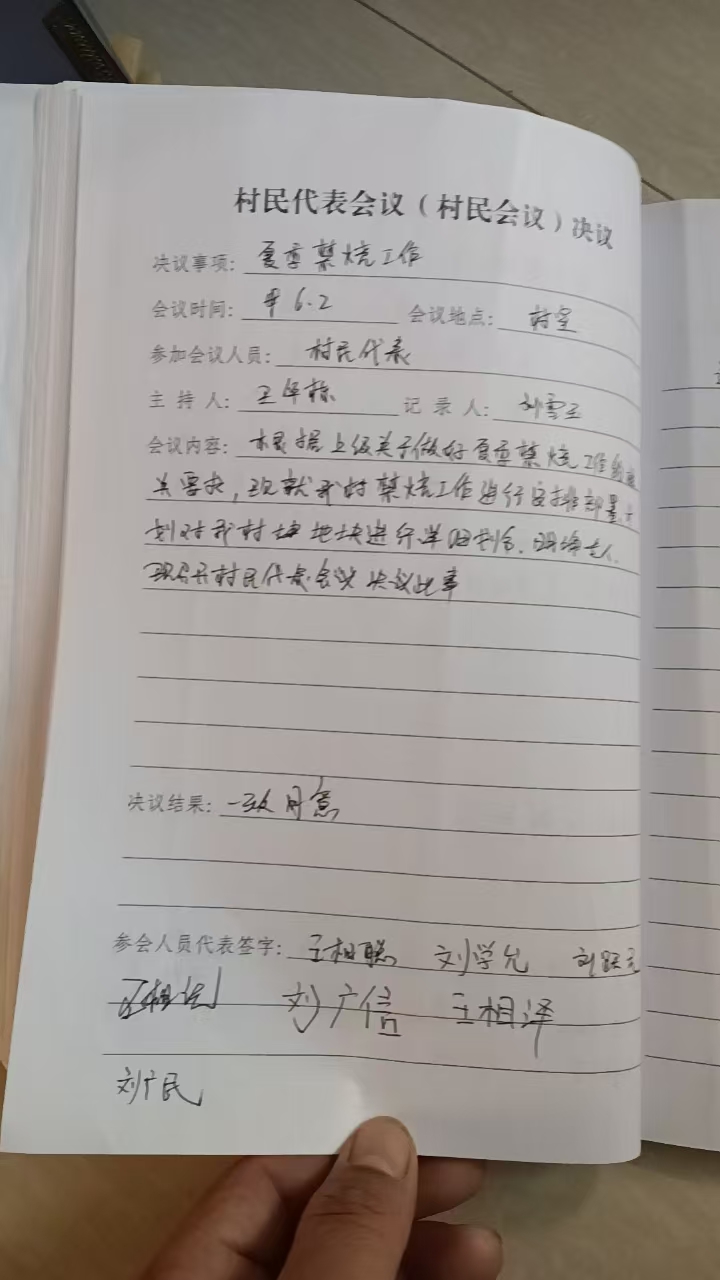 村民代表会议（村民会议）决议
决议事项：夏季禁烧工作
会议时间：6.2 会议地点：村室
参加会议人员：村民代表
主持人：王 记录人：刘雪
会议内容：根据上级关于做好夏季禁烧工作的
关要求，现就我村禁烧工作进行安排部署，计
划对我村地块进行
现召开村民代表会议决议此事
决议结果：一致同意
参会人员代表签字：王相聪 刘学允 刘
王相 刘广信 王相泽
刘广民